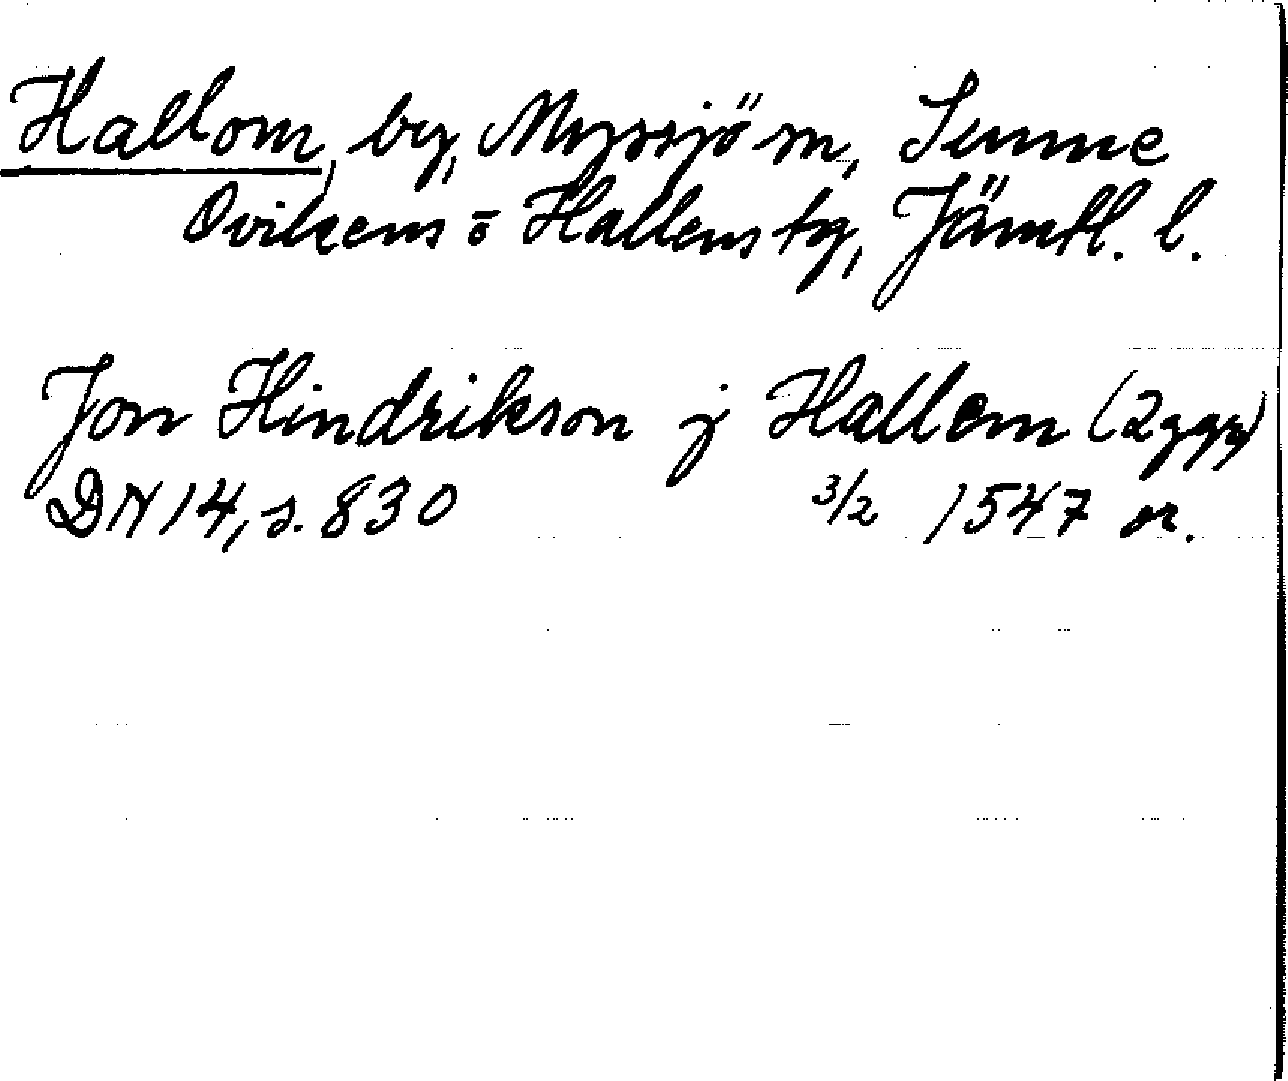 Hallom, by, Myssjö sn, Sunne
Ovikens ō Hallens tg, Jämtl. l.
Jon Hindrikson j Hallem (2 ggr)
DN 14, s. 830 3/2 1547 or.